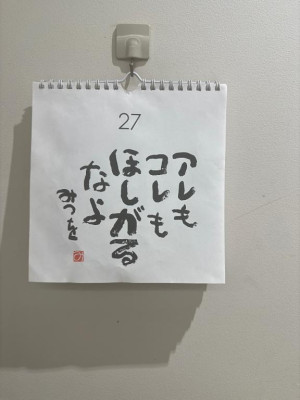 27
アレも
コレも
ほしがる
なよ
みつを